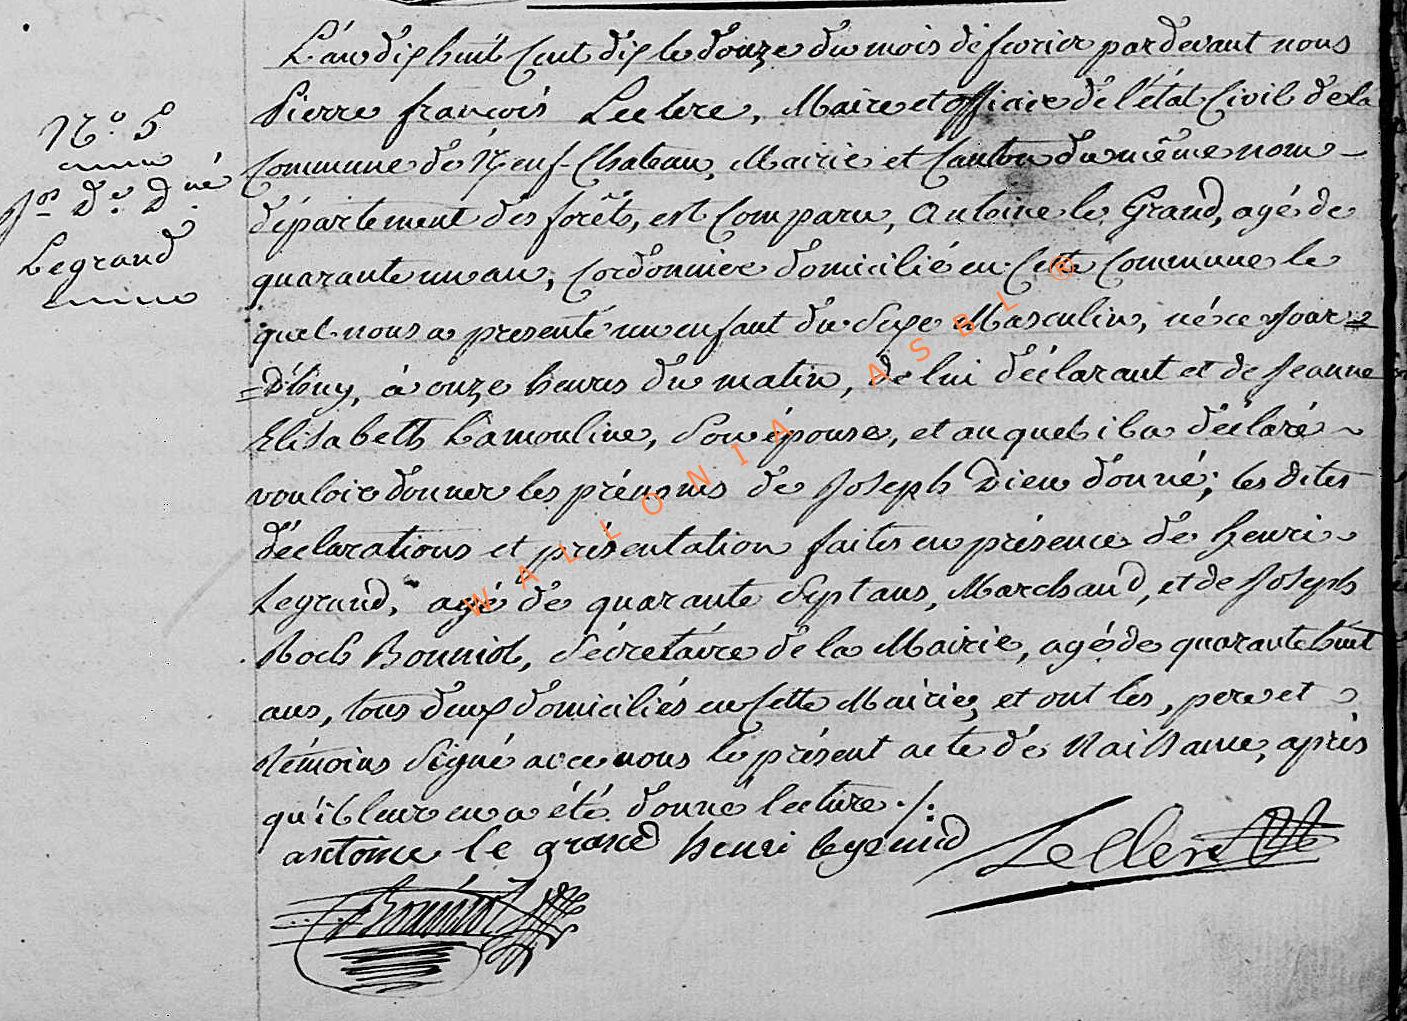 L'an dix huit Cent dix le douze du mois de fevrier pardevant nous
Pierre françois Leclere, Maire et officier de l'état Civil de la
Commune de Neuf-Chateau, Mairie et Canton du même nom
N.° 5
département des forêts, est Comparu, Antoine le Grand, agé de
Jos D.e D.né
Legrand
quarante un an, Cordonnier domicilié en Cette Commune le
quel nous a presenté un enfant du Sexe Masculin, né ce Jour
= D'huy, à onze heures du matin, de lui déclarant et de Jeanne
Elisabeth Lamouline, Son épouse, et auquel il a déclaré
vouloir donner les prénoms de Joseph Dieu donné; les dites
déclarations et présentation faites en présence de henri
Legrand, agé de quarante Sept ans, Marchand, et de Joseph
Roch Bonniot, Sécretaire de la Mairie, agé de quarante huit
ans, tous deux domiciliés en Cette Mairie, et ont les, pere et
témoins Signé avec nous le présent acte de Naissance, après
qu'il leur en a été donné lecture ./.
antoine le grand henri legrand LeClere
Bonniot
WALLONIA ASBL ®